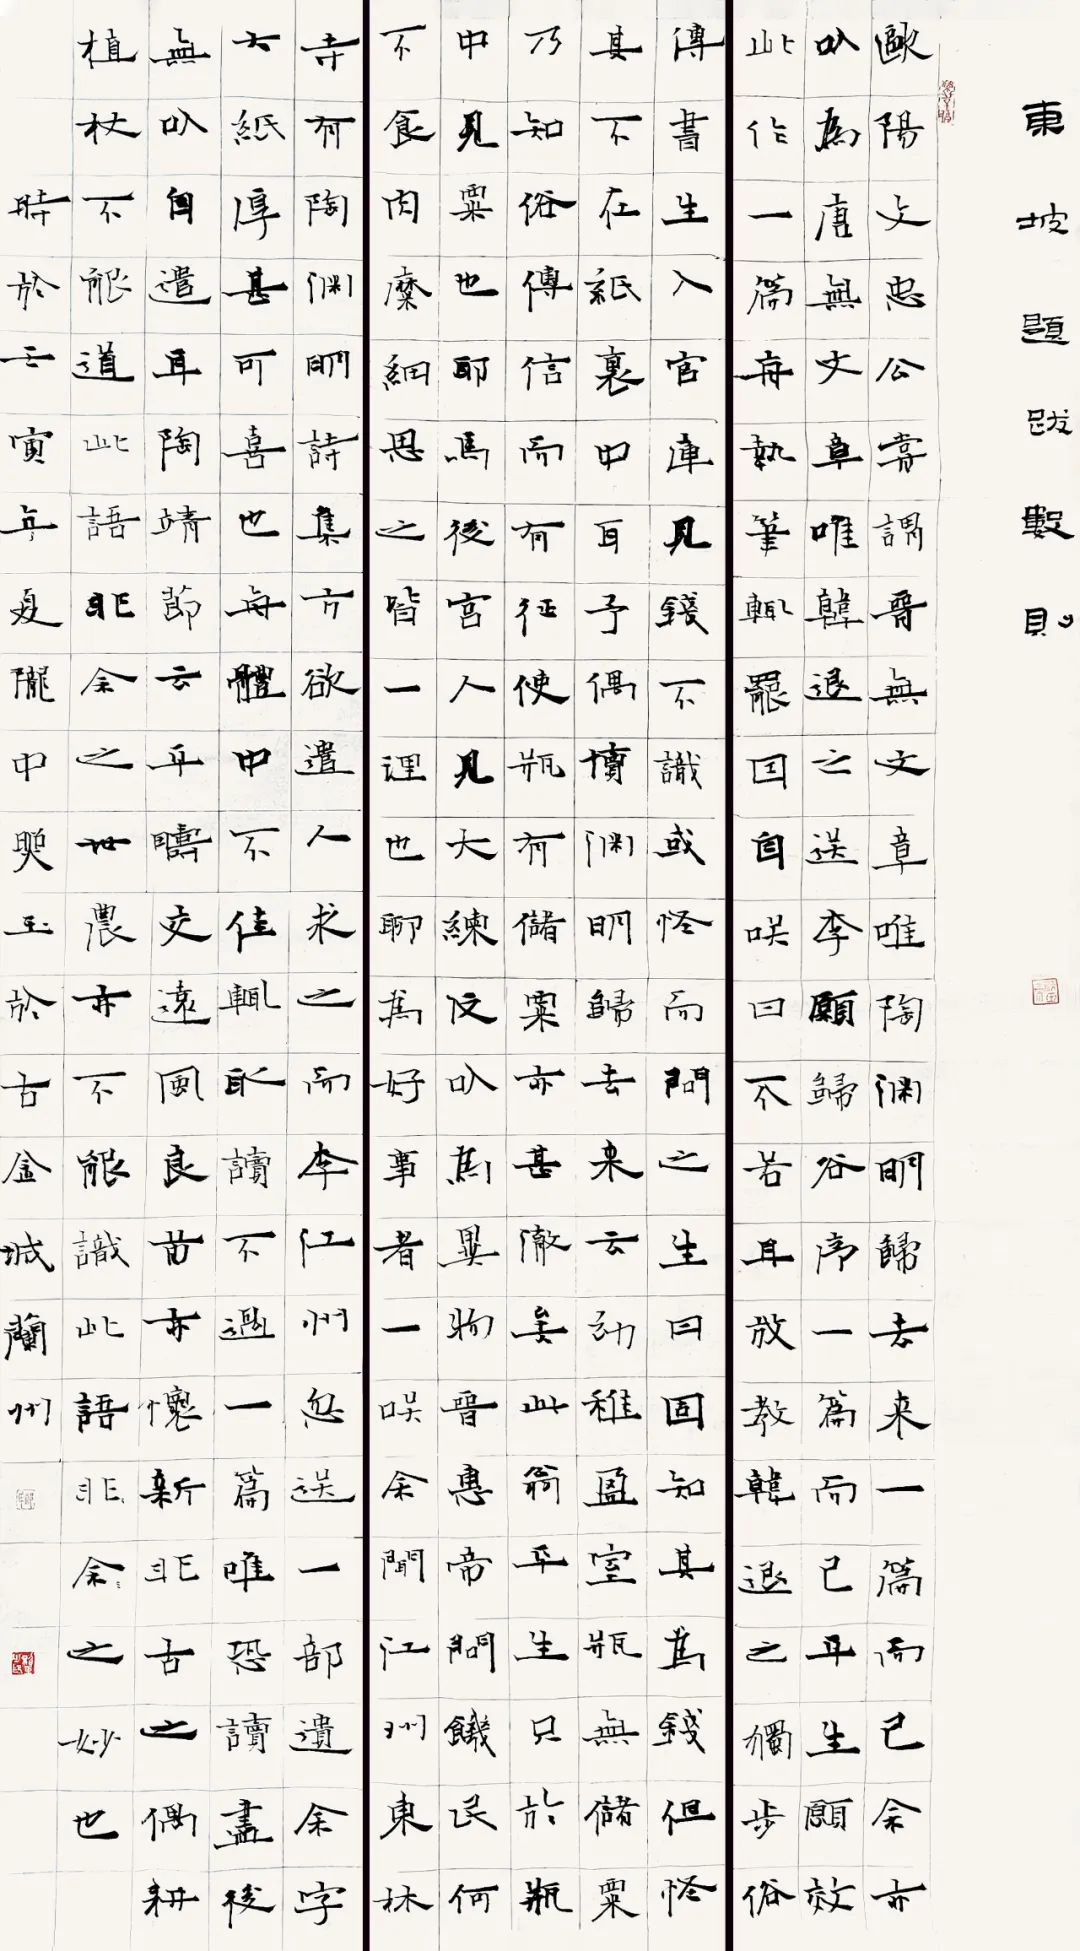 東坡題跋數則
歐陽文忠公嘗謂晉無文章唯陶淵明歸去来一篇而已余亦
以為唐無文章唯韓退之送李願歸谷序一篇而已平生願效
此作一篇每執筆輒罷因自咲曰不若且放教韓退之獨步俗
傳書生入官庫見錢不識或怪而問之生曰固知其為錢但怪
其不在紙裏中耳予偶讀淵明歸去来云幼稚盈室瓶無儲粟
乃知俗傳信而有征使瓶有儲粟亦甚微矣此翁平生只於瓶
中見粟也耶馬後宮人見大練反以為異物晉惠帝問饑民何
不食肉糜細思之皆一理也聊為好事者一咲余聞江州東林
寺有陶淵明詩集方欲遣人求之而李江州忽送一部遺余字
大紙厚甚可喜也每體中不佳輒取讀不過一篇唯恐讀盡後
無以自遣耳陶靖節云平疇交遠風良苗亦懷新非古之偶耕
植杖不能道此語非余之世農亦不能識此語非余之妙也
時於壬寅年夏隴中玉於古金城蘭州